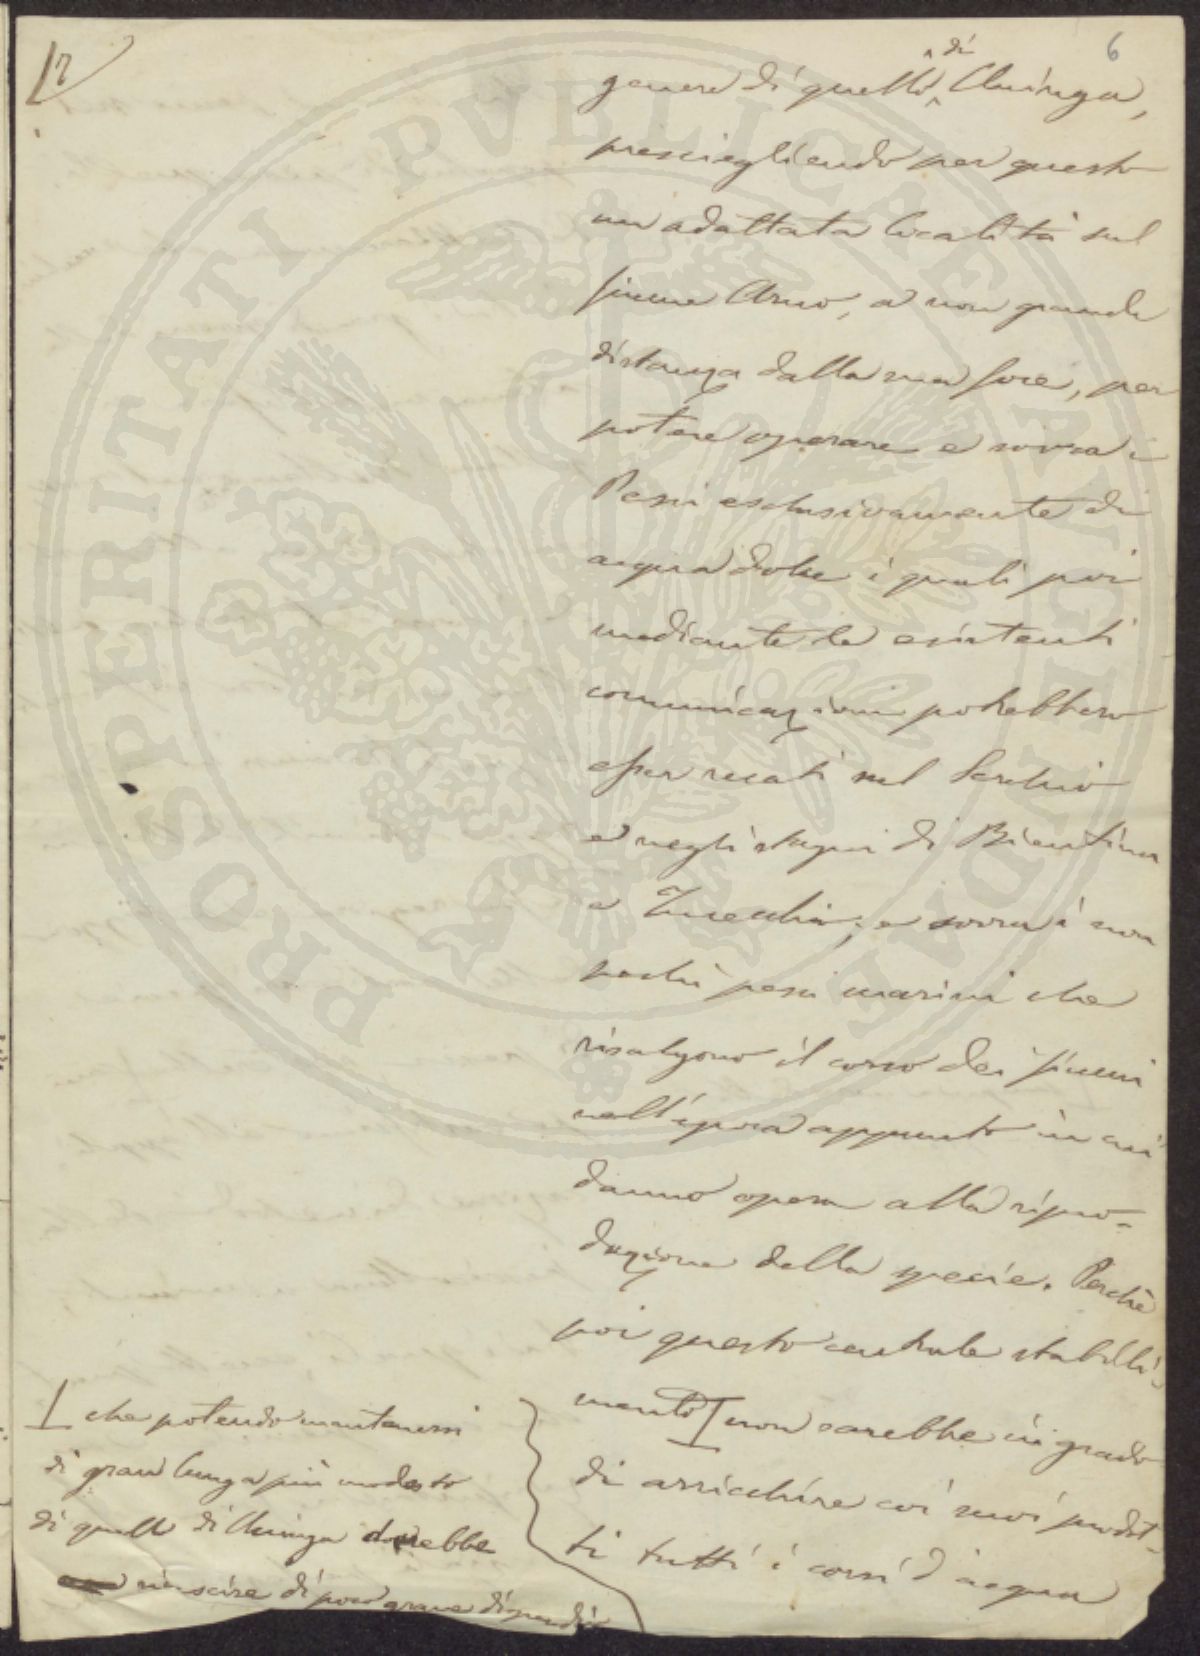 6
genere di quello di Uninga,
prescegliendo per questo
un adattata località sul
fiume Arno, a non grande
distanza dalla sua foce, per
potere operare e sovra i
Pesci esclusivamente di
acqua dolce i quali poi
mediante le esistenti
comunicazioni potrebbero
esser recati nel Serchio
e negli stagni di Bientina
e Fucecchio; e sovra i non
pochi pesci marini che
risalgono il corso dei fiumi
nell'epoca appunto in cui
danno opera alla ripro-
duzione della specie. Perchè
poi questo centrale stabili-
mento non sarebbe in grado
di arricchire coi suoi prodot-
ti tutti i corsi d'acqua
che potendo mantenersi
di gran lunga più modesto
di quello di Uninga dovrebbe
riuscire di poco grave dispendio
PROSPERITATI PVBLICAE AVGENDAE